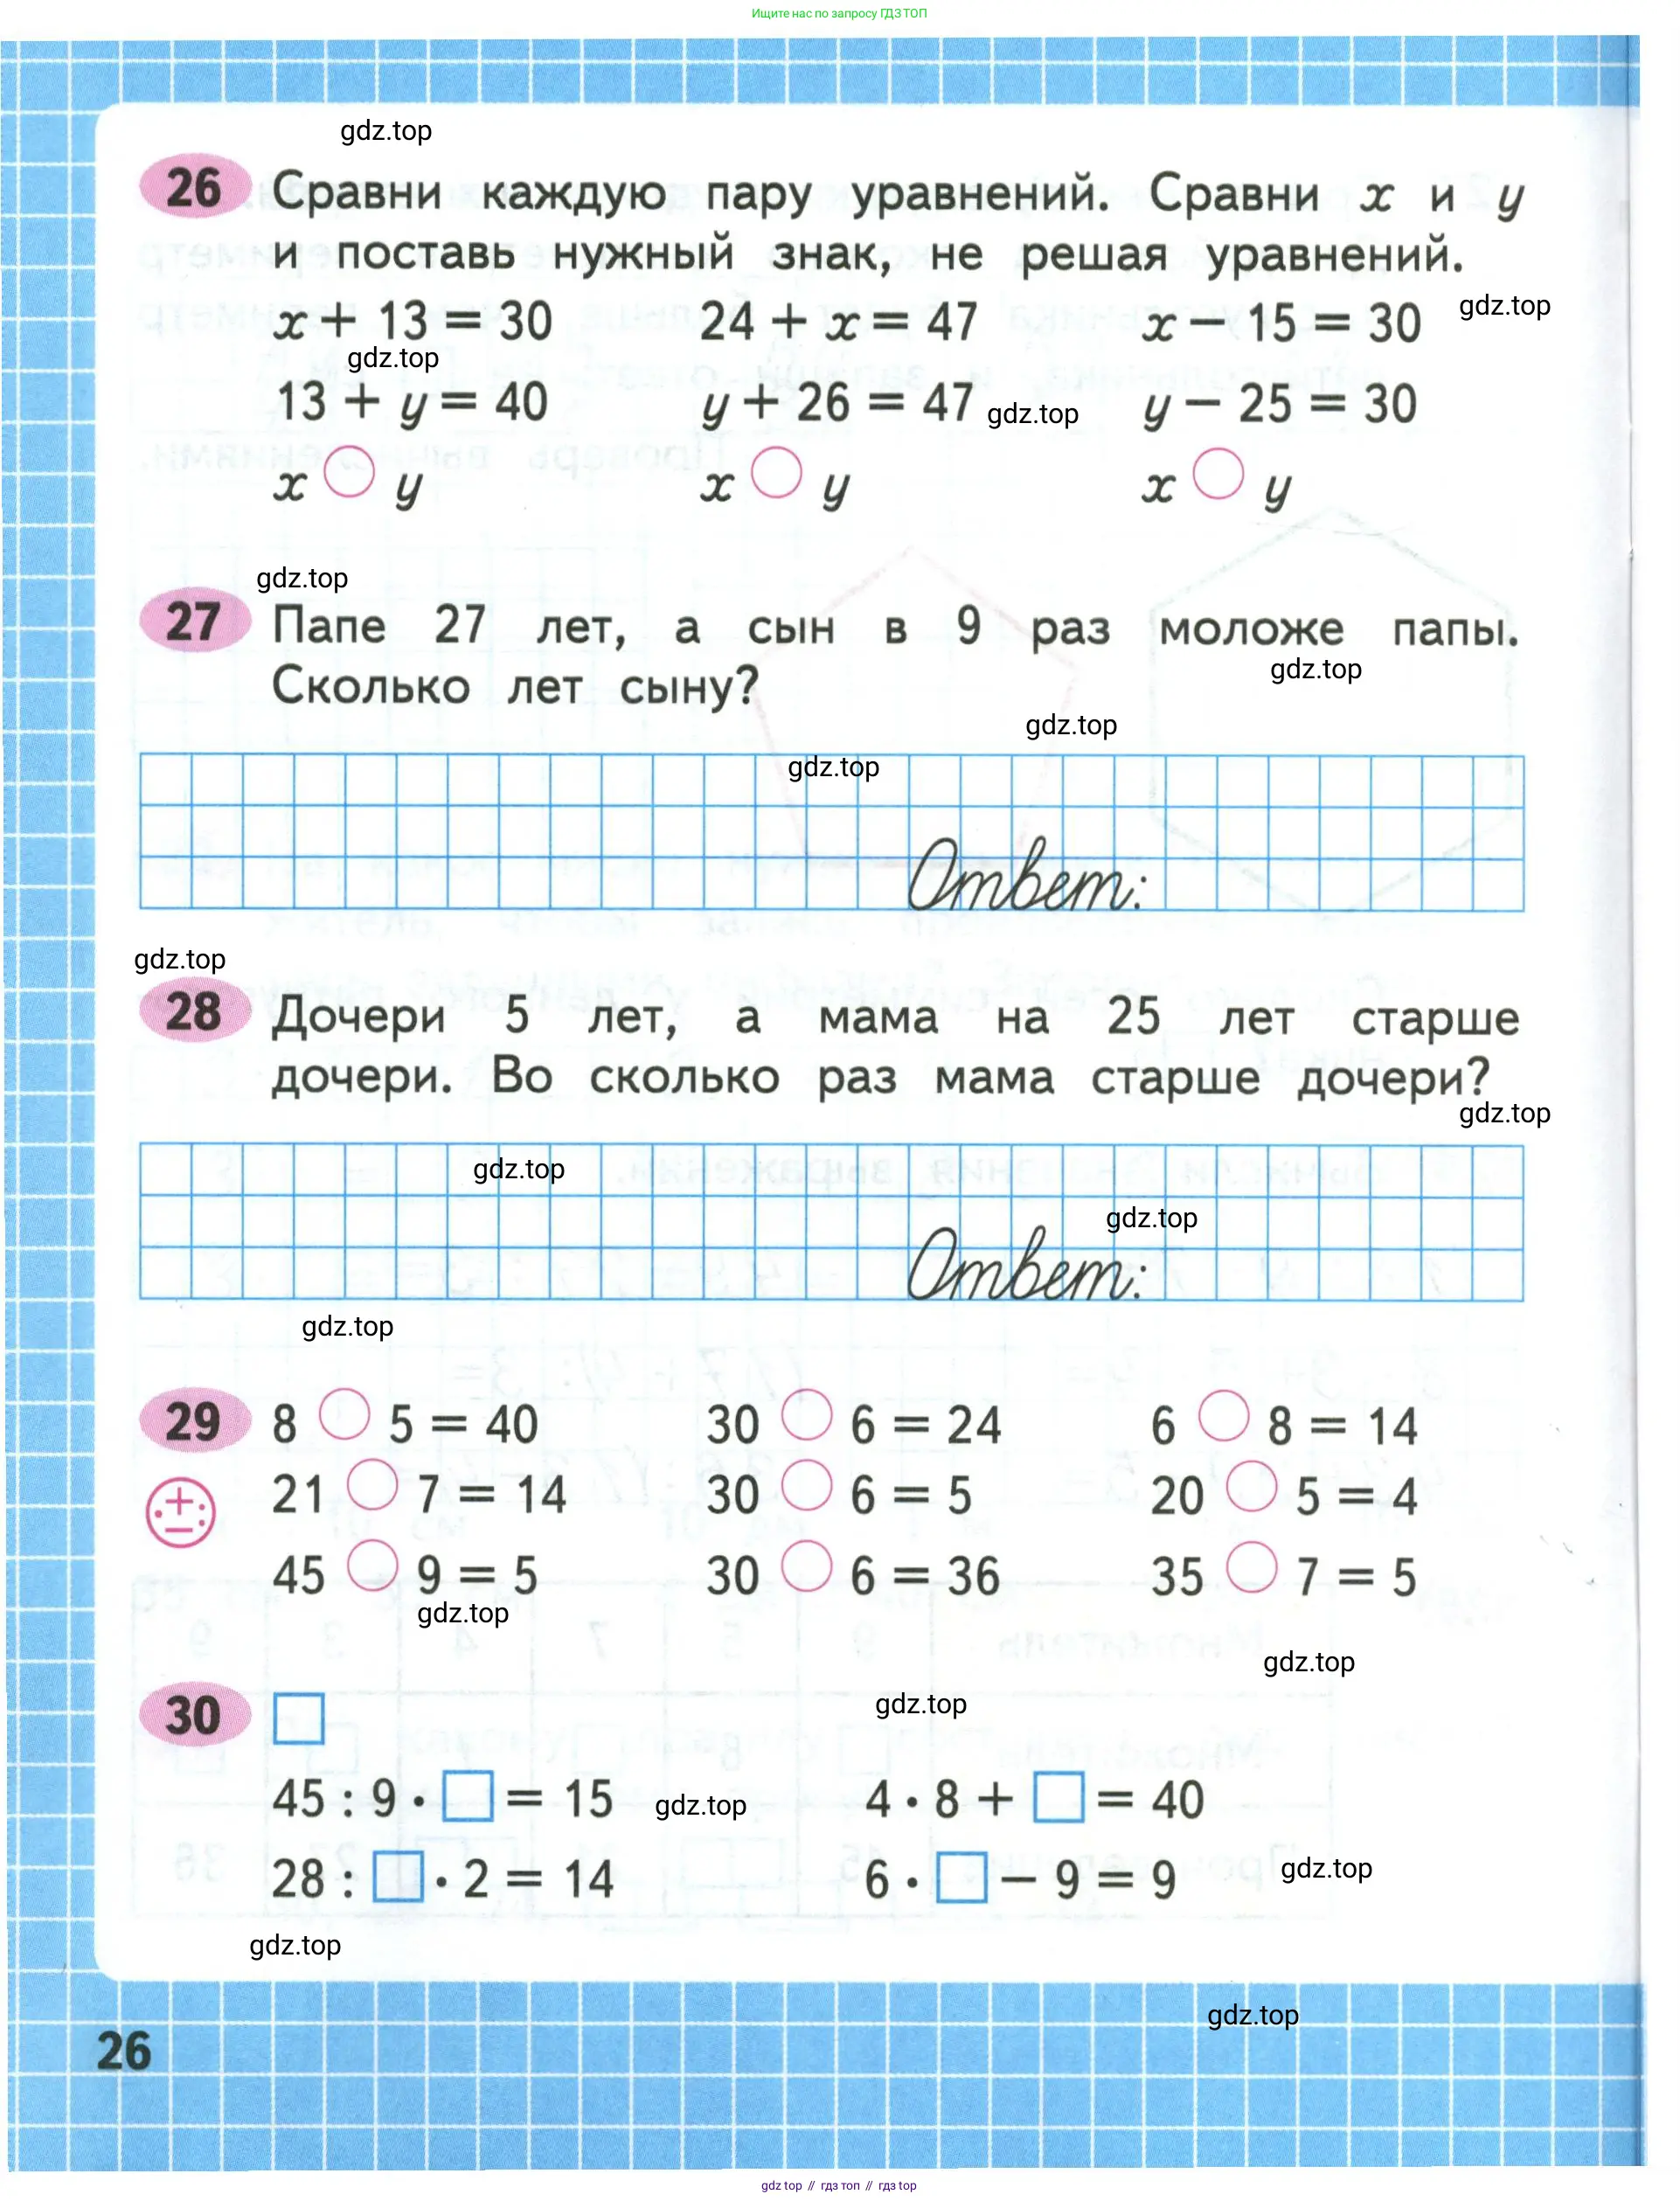 Ищите нас по запросу ГДЗ ТОП
gdz.top
26 Сравни каждую пару уравнений. Сравни x и y
и поставь нужный знак, не решая уравнений.
x + 13 = 30 24 + x = 47 x − 15 = 30 gdz.top
gdz.top
13 + y = 40 y + 26 = 47 gdz.top y − 25 = 30
x ○ y x ○ y x ○ y
gdz.top
27 Папе 27 лет, а сын в 9 раз моложе папы.
Сколько лет сыну?
gdz.top
gdz.top
gdz.top
Ответ:
gdz.top
28 Дочери 5 лет, а мама на 25 лет старше
дочери. Во сколько раз мама старше дочери?
gdz.top
gdz.top
gdz.top
Ответ:
gdz.top
29 8 ○ 5 = 40 30 ○ 6 = 24 6 ○ 8 = 14
+ − · : 21 ○ 7 = 14 30 ○ 6 = 5 20 ○ 5 = 4
45 ○ 9 = 5 30 ○ 6 = 36 35 ○ 7 = 5
gdz.top
gdz.top
30 □ gdz.top
45 : 9 · □ = 15 gdz.top 4 · 8 + □ = 40
28 : □ · 2 = 14 6 · □ − 9 = 9 gdz.top
gdz.top
gdz.top
26
gdz.top // гдз топ // гдз top